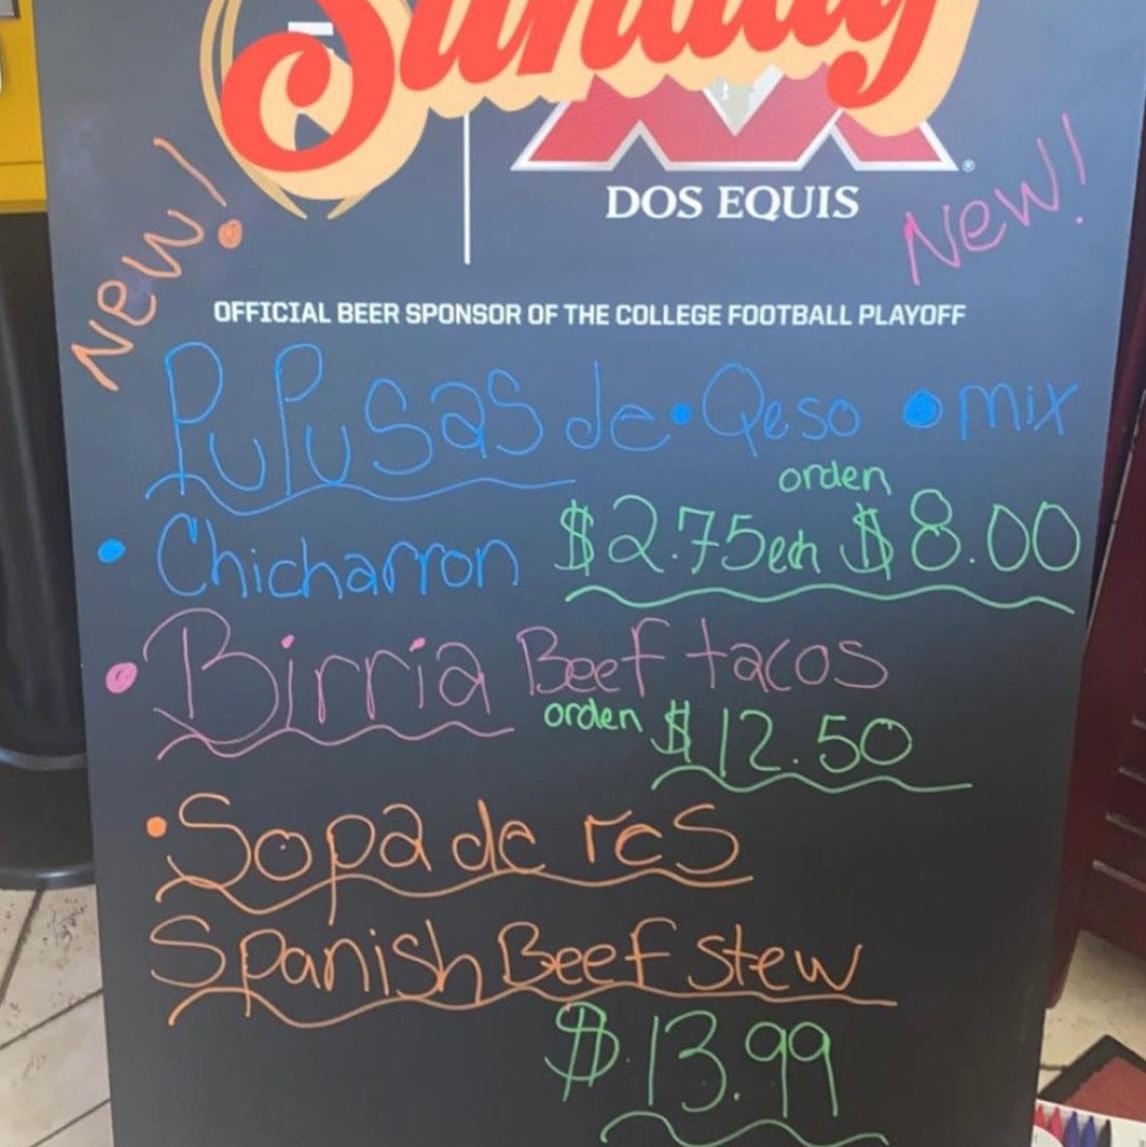 Sunday
DOS EQUIS
New!
New!
OFFICIAL BEER SPONSOR OF THE COLLEGE FOOTBALL PLAYOFF
PuPusas de • Qeso • mix
orden
• Chicharron $2.75 ech $8.00
• Birria Beef tacos
orden $12.50
• Sopa de res
Spanish Beef stew
$13.99